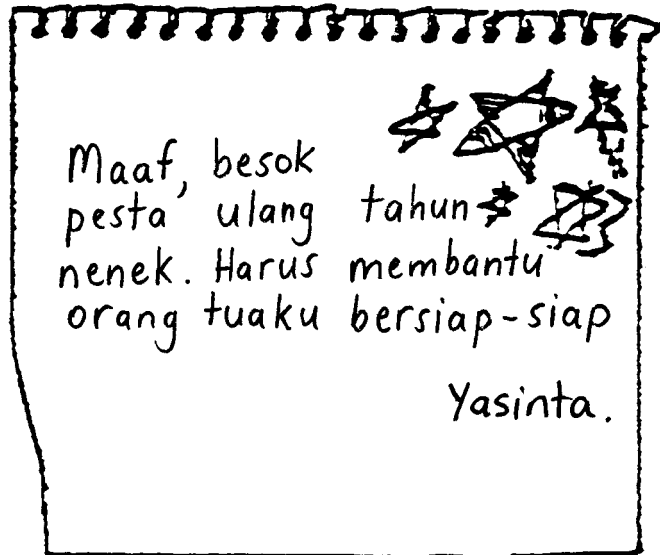 Maaf, besok
pesta ulang tahun
nenek. Harus membantu
orang tuaku bersiap-siap
Yasinta.